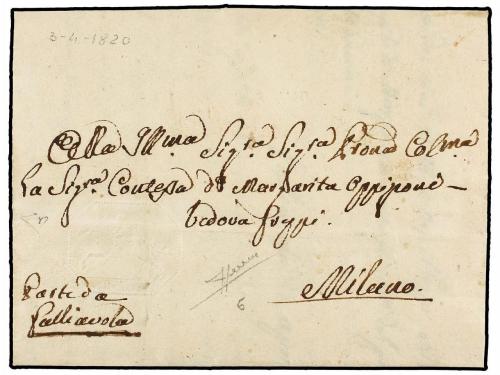 3-4-1820
Alla Ill.ma Sig.ra Sig.ra Pron.a Col.ma
La Sig.ra Contessa D. Margarita Oppizoni
Vedova Foppi.
Milano.
6
Parte da
Galliavola